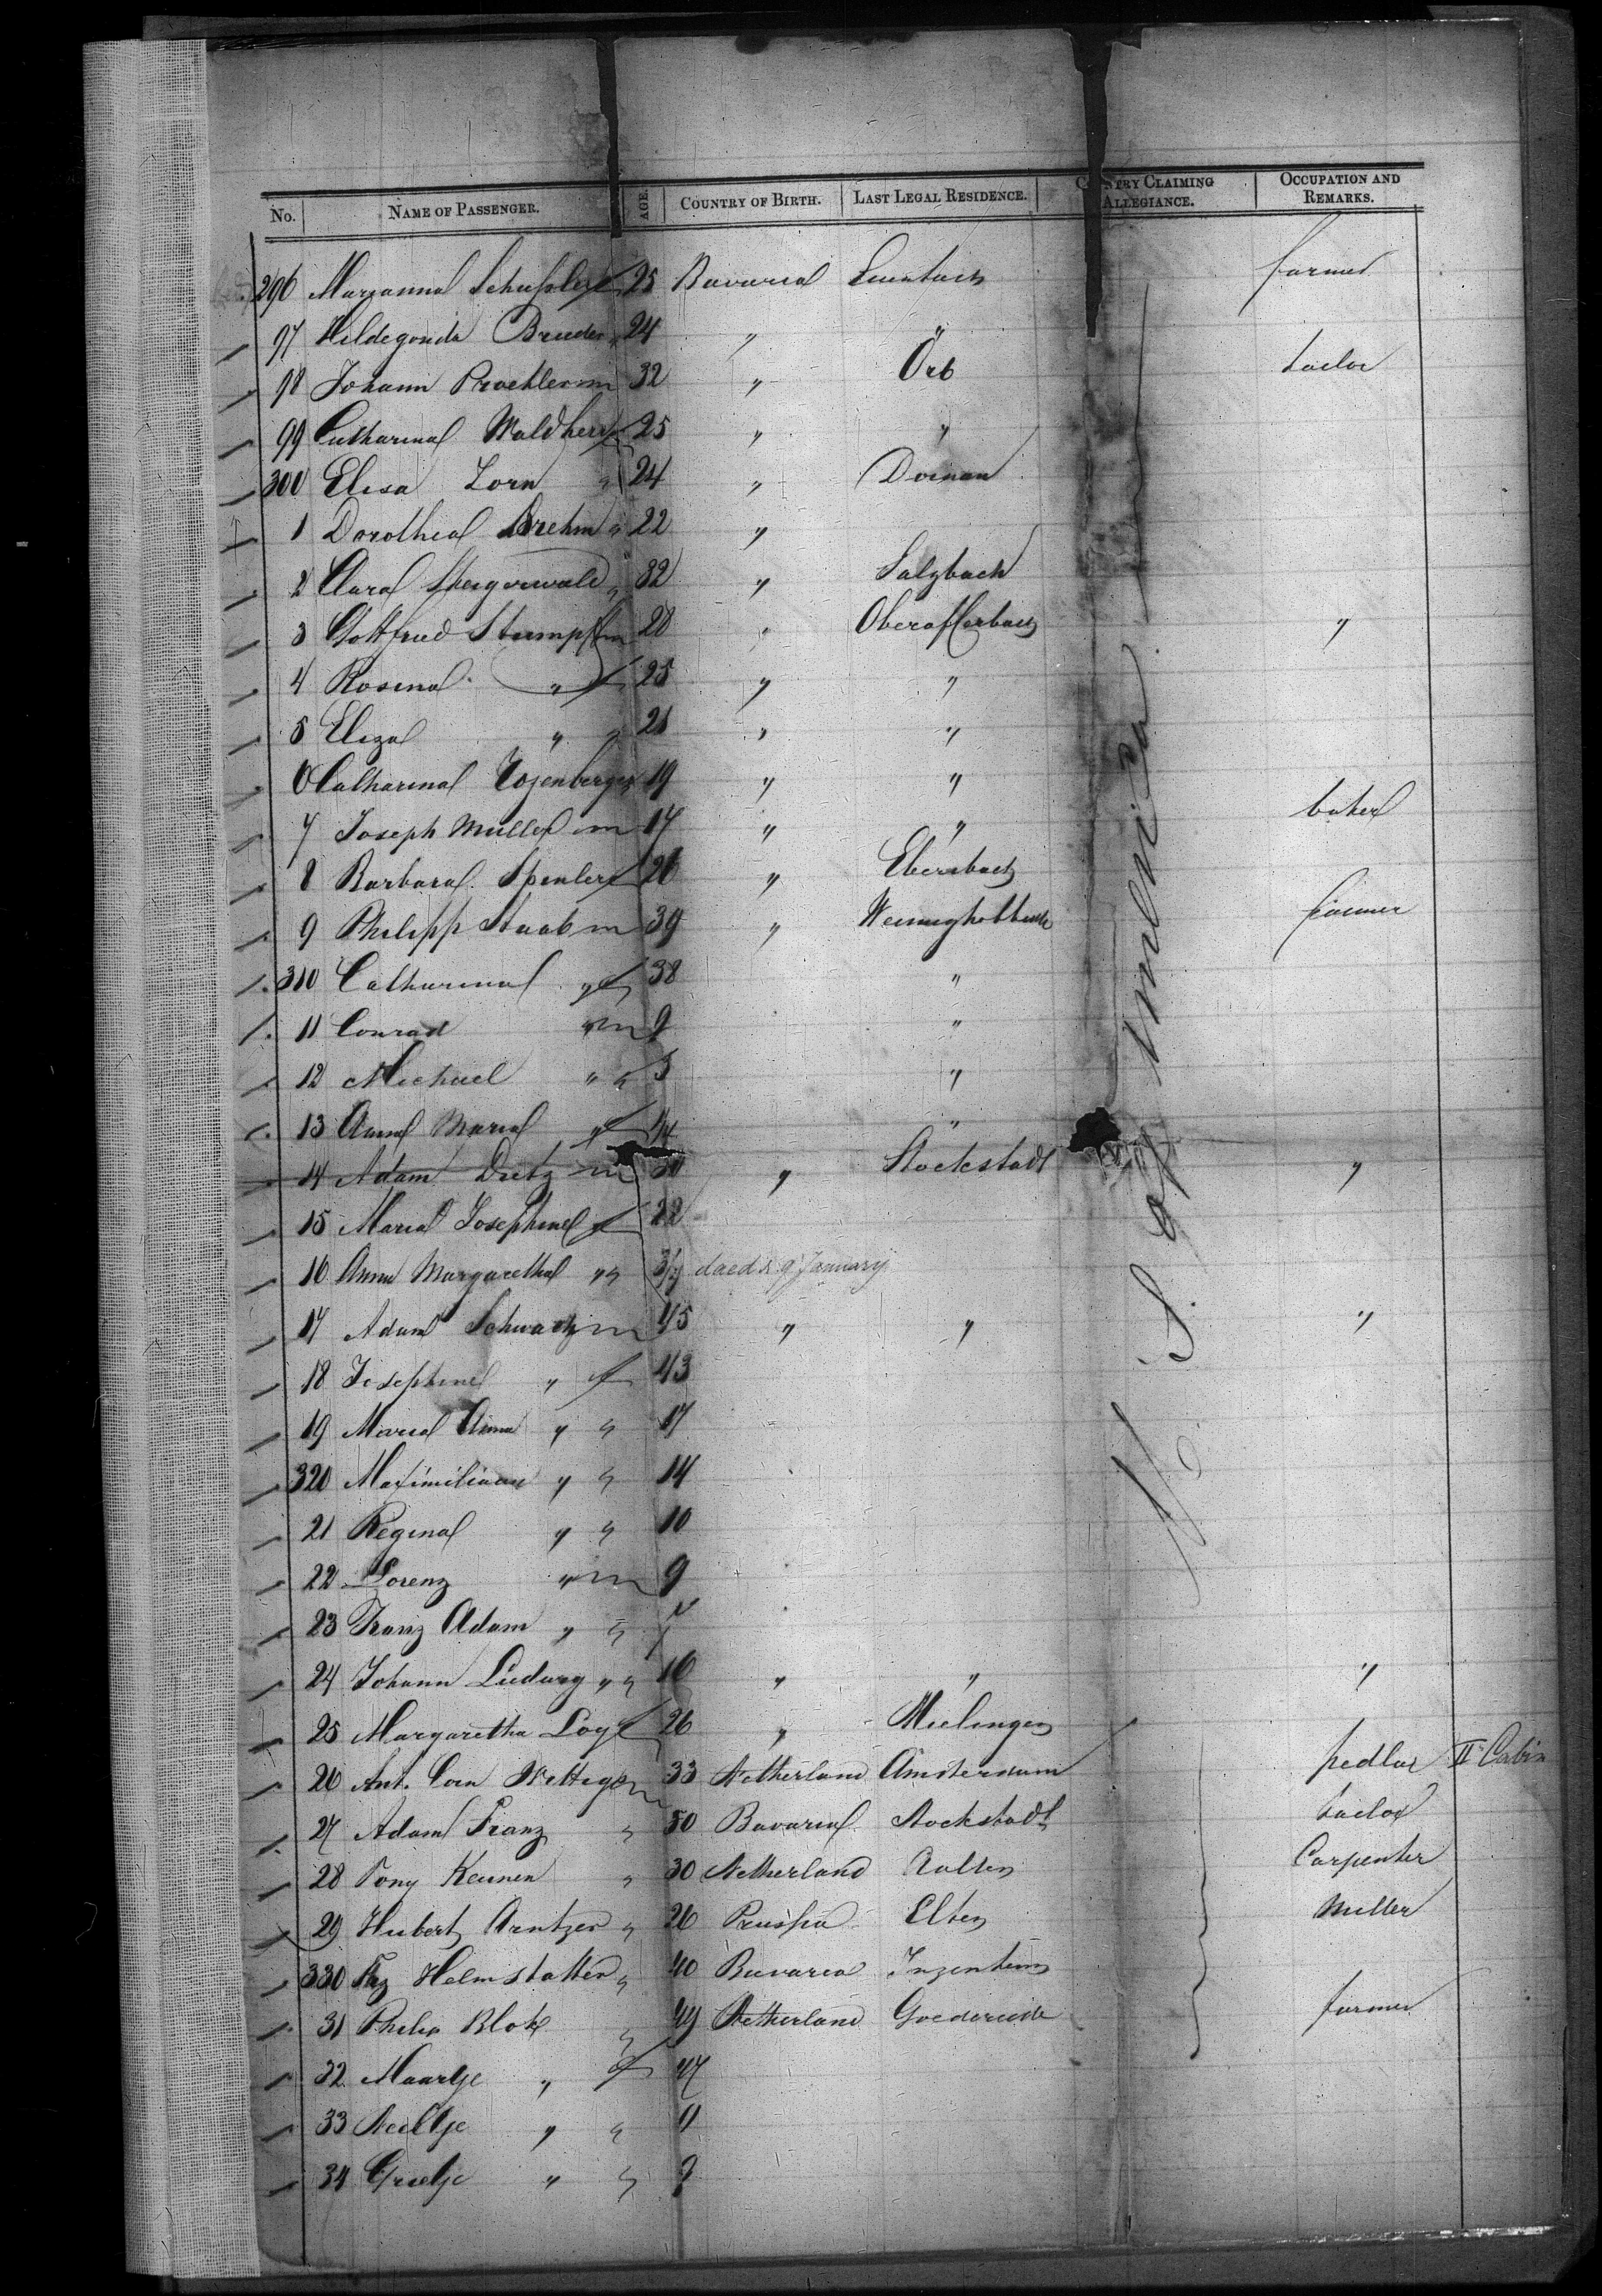 No. NAME OF PASSENGER. AGE. COUNTRY OF BIRTH. LAST LEGAL RESIDENCE. COUNTRY CLAIMING ALLEGIANCE. OCCUPATION AND REMARKS.
296 Marianna 25 Bavaria farmer
97 Hildegonda Bruder " 24 "
98 Johann m 32 " Orb tailor
99 Catharina f 25 " "
300 Elisa Zorn " 24 "
1 Dorothea Brehm " 22 "
2 Clara Steigerwald " 32 " Salzbach
3 Gottfried Stumpf m 28 " "
4 Rosina " f 25 " "
5 Eliza " " 21 " "
6 Catharina 19 " "
7 Joseph Muller m 17 " " baker
8 Barbara f 20 " Ebersbach
9 Philipp Staab m 39 " farmer
310 Catharina " f 38 "
11 Conrad " m 9 "
12 Michael " " 3 "
13 Anna Maria " f "
14 Adam Dietz m 30 " Stockstadt "
15 Maria Josephine f 22
16 Anna Margaretha " " January
17 Adam Schwartz m 45 " " "
18 Josephine " f 43
19 Maria Anna " " 17
320 Maximiliaan " " 14
21 Regina " " 10
22 Lorenz " m 9
23 Franz Adam " "
24 Johann Ludwig " " 16 " " "
25 Margaretha f 26 "
26 Ant. Corn m 33 Netherland Amsterdam pedlar II Cabin
27 Adam Franz " 50 Bavaria Stockstadt tailor
28 Tony Keunen " 30 Netherland Aalten Carpenter
29 Hubert Arntzen " 26 Prussia Elten Miller
330 Helmstatter " 40 Bavaria
31 Philip Blok " 49 Netherland Goedereede farmer
32 Maartje " f 47
33 Neeltje " " 9
34 Grietje " " 7
U. S. of America